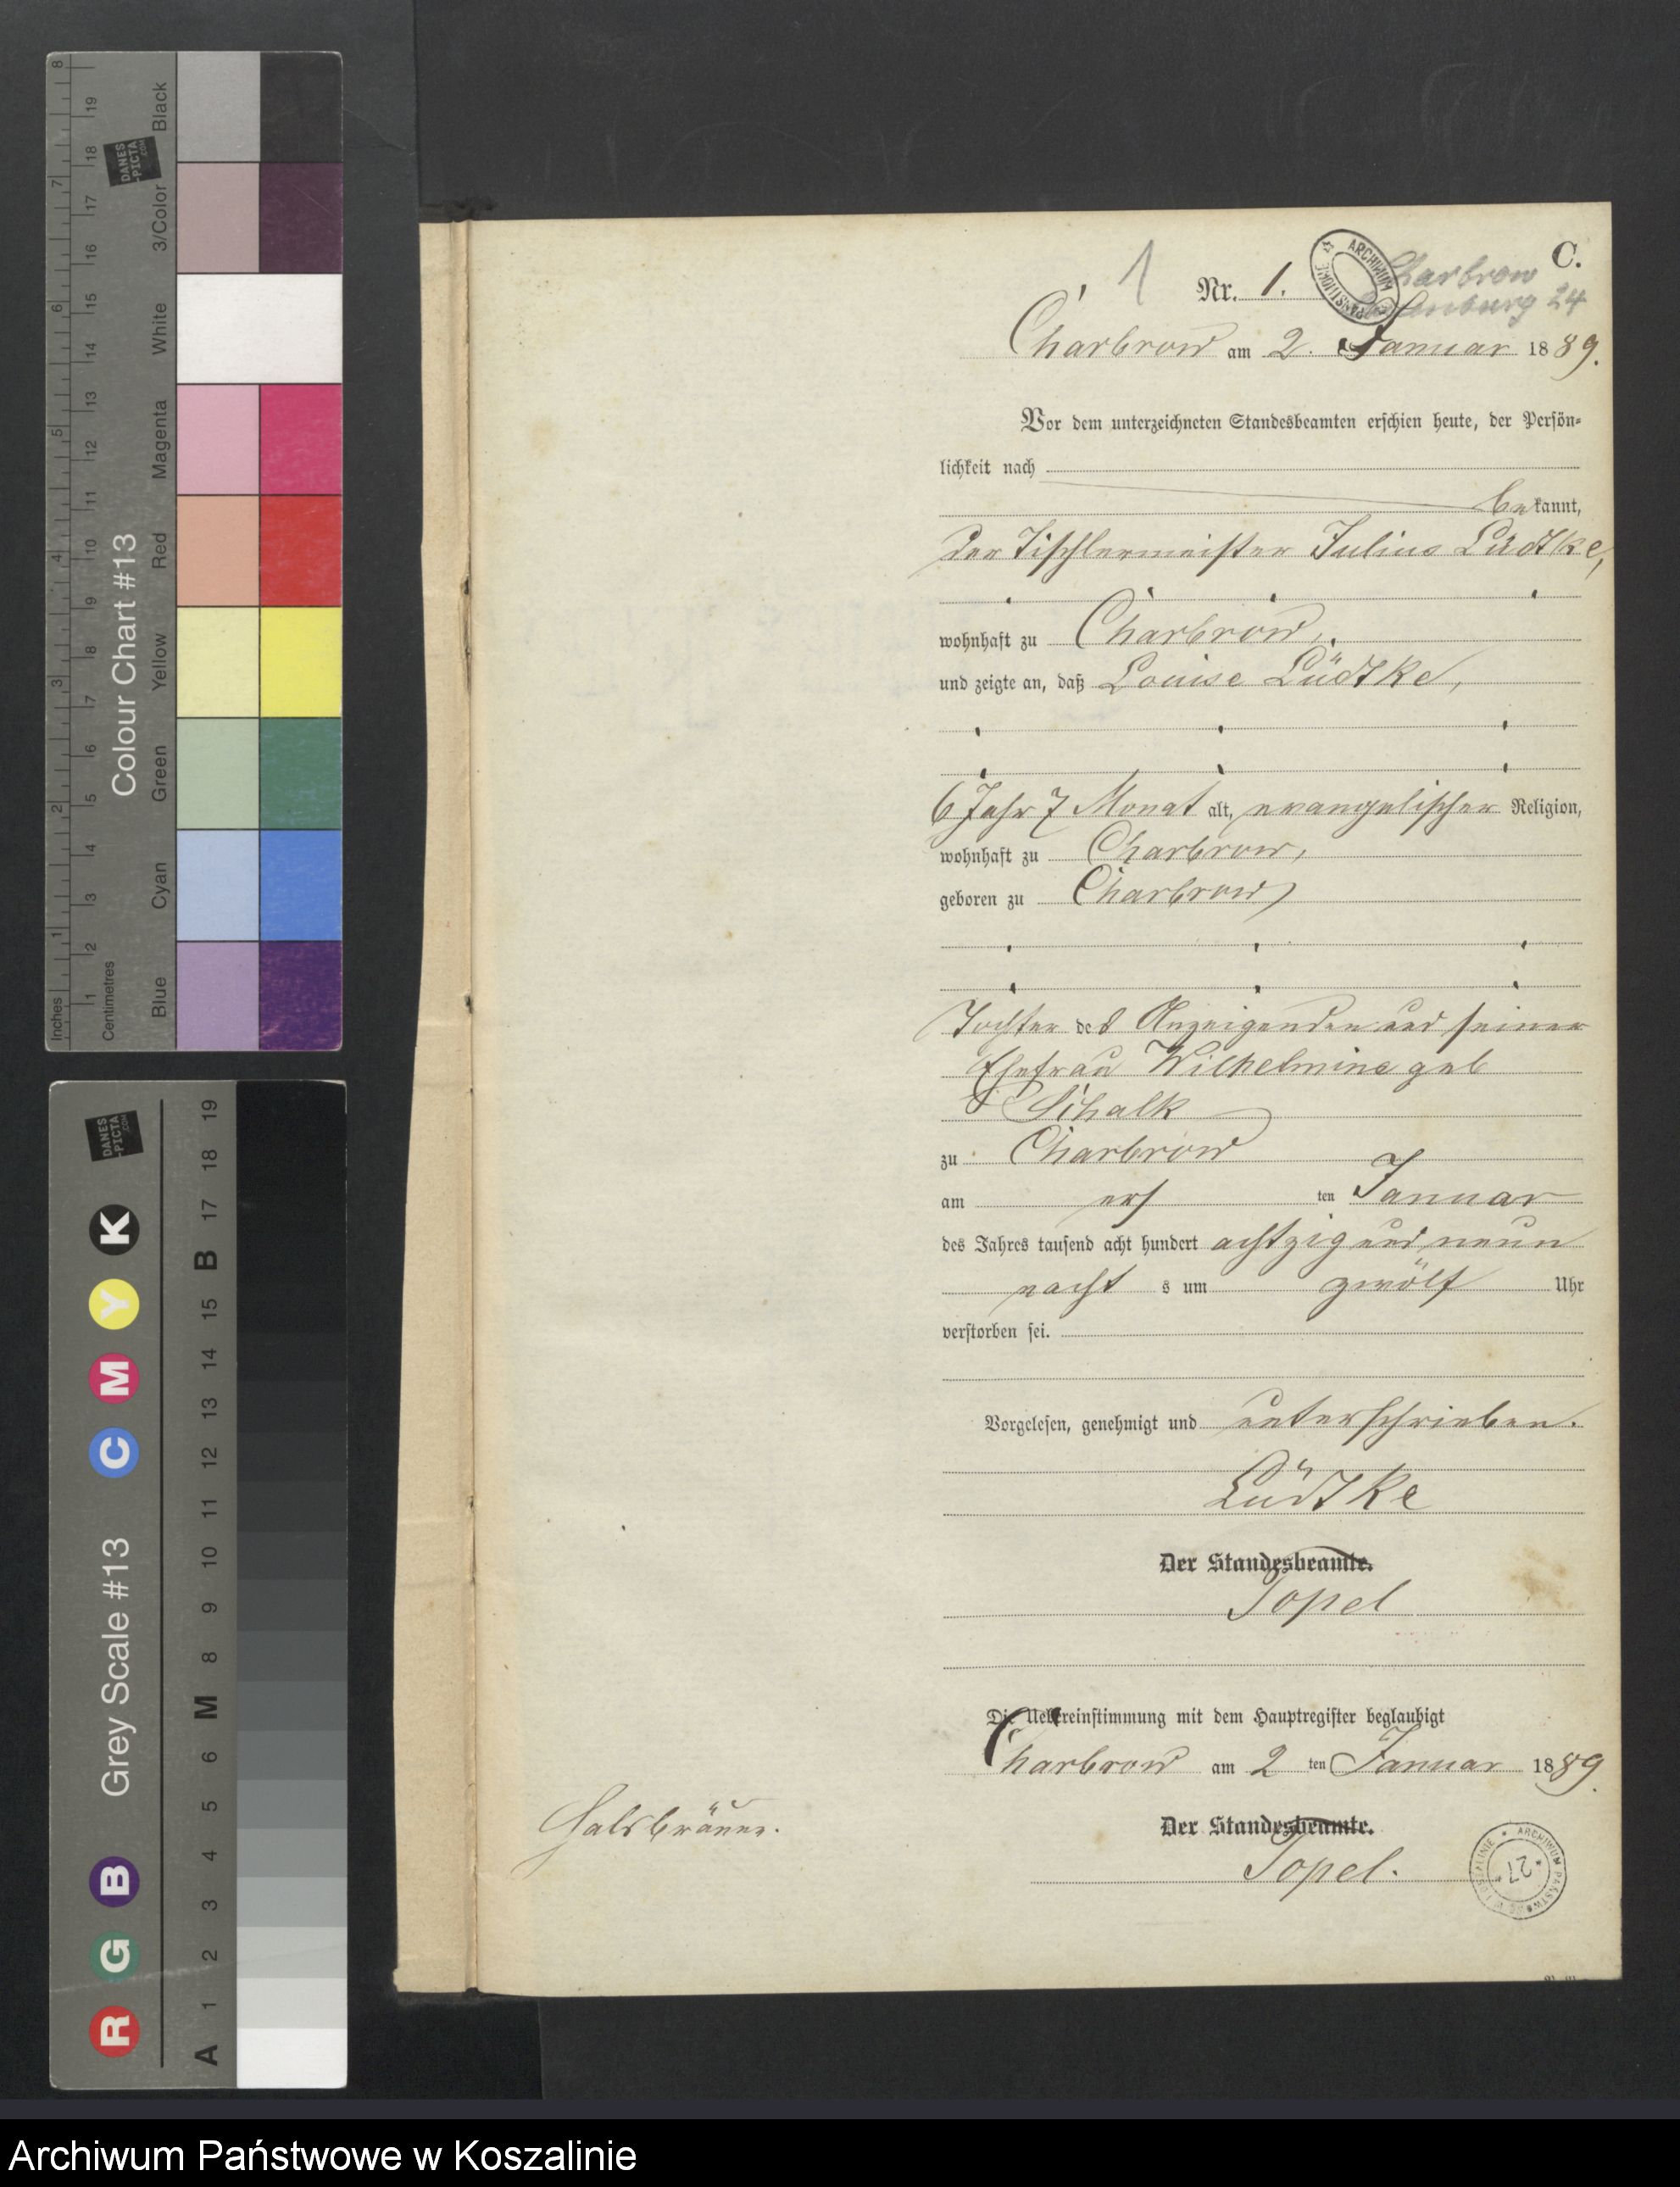 C.
1
Nr. 1.
Charbrow
24
Charbrow am 2. Januar 1889.
Vor dem unterzeichneten Standesbeamten erschien heute, der Persön-
lichkeit nach
bekannt,
der Tischlermeister Julius Lüdtke,
wohnhaft zu Charbrow,
und zeigte an, daß Louise Lüdtke,
6 Jahr 7 Monat alt, evangelischer Religion,
wohnhaft zu Charbrow,
geboren zu Charbrow,
Tochter des Anzeigenden und seiner
Ehefrau Wilhelmine geb
Schalk
zu Charbrow
am ersten Januar
des Jahres tausend acht hundert achtzig und neun
nachts um zwölf Uhr
verstorben sei.
Vorgelesen, genehmigt und unterschrieben.
Lüdtke
Der Standesbeamte.
Topel
Die Uebereinstimmung mit dem Hauptregister beglaubigt
Charbrow am 2ten Januar 1889.
Der Standesbeamte.
Topel.
Halsbräune.
ARCHIWUM PAŃSTWOWE
27
Colour Chart #13
Inches
1 2 3 4 5 6 7 8
Centimetres
1 2 3 4 5 6 7 8 9 10 11 12 13 14 15 16 17 18 19
Blue Cyan Green Yellow Red Magenta White 3/Color Black
DANES
-PICTA
.COM
Grey Scale #13
R G B C M Y K
A 1 2 3 4 5 6 M 8 9 10 11 12 13 14 15 B 17 18 19
DANES
-PICTA
.COM
Archiwum Państwowe w Koszalinie